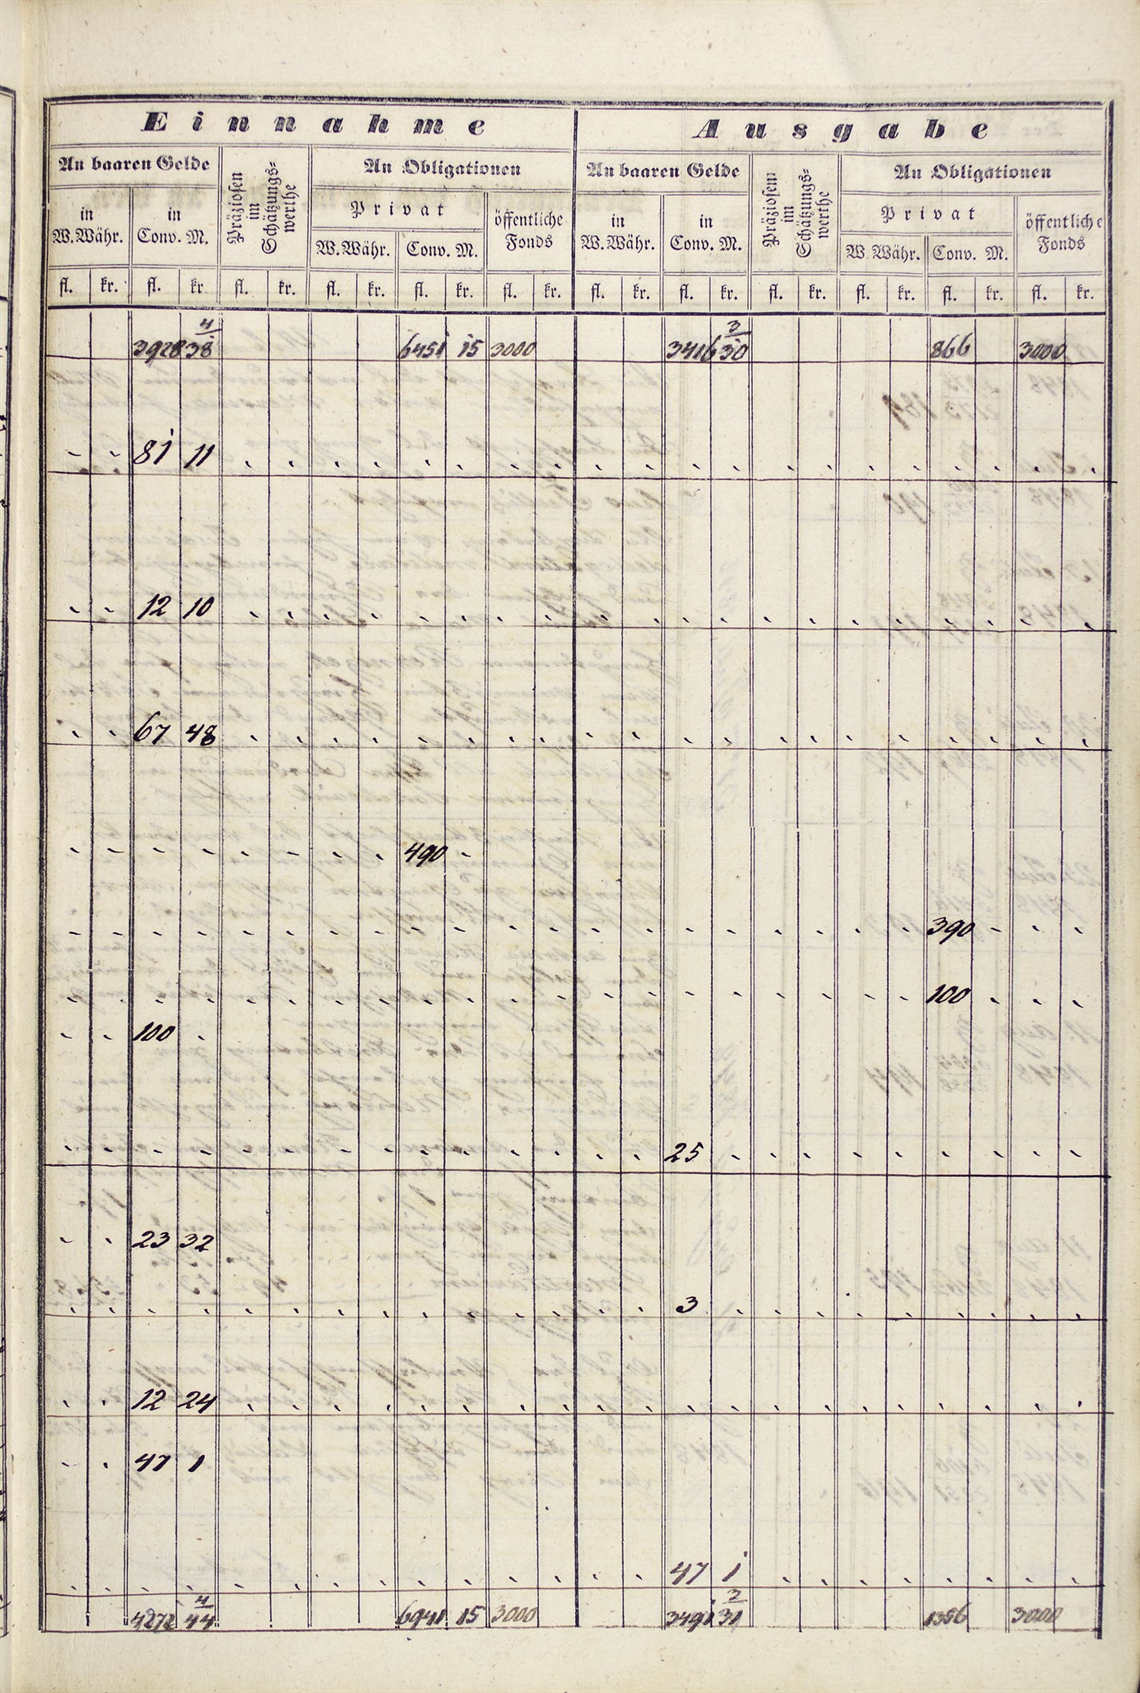 Einnahme Ausgabe
An baaren Gelde Präziosen im Schätzungs=werthe An Obligationen An baaren Gelde Präziosen im Schätzungs=werthe An Obligationen
in W. Währ. in Conv. M. Privat öffentliche Fonds in W. Währ. in Conv. M. Privat öffentliche Fonds
W. Währ. Conv. M. W. Währ. Conv. M.
fl. kr. fl. kr. fl. kr. fl. kr. fl. kr. fl. kr. fl. kr. fl. kr. fl. kr. fl. kr. fl. kr. fl. kr.
3928 38 4/ 6451 15 3000 3416 30 3/ 866 3000
81 11
12 10
67 48
490 -
390 -
100
100 -
25
23 32
3
12 24
47 1
47 1
4272 44 4/ 6941 15 3000 3491 31 3/ 1356 3000